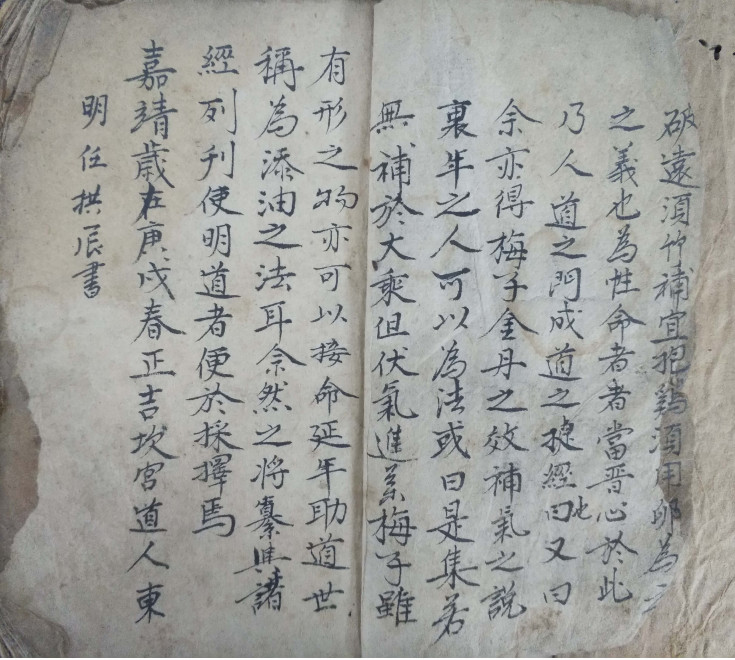 破遠須竹補宜抱鷄須用卵為之
之義也為性命者者當晋心於此
乃人道之門成道之捷經曰也又曰
余亦得梅子金丹之效補氣之説
裏年之人可以為法或曰是集若
無補於大乘但伏氣進業梅子雖
有形之物亦可以接命延年助道世
稱為添油之法耳余然之将纂輿諸
經列刋使明道者便於採擇焉
嘉靖歲在庚戍春正吉坎宮道人東
明任拱辰書